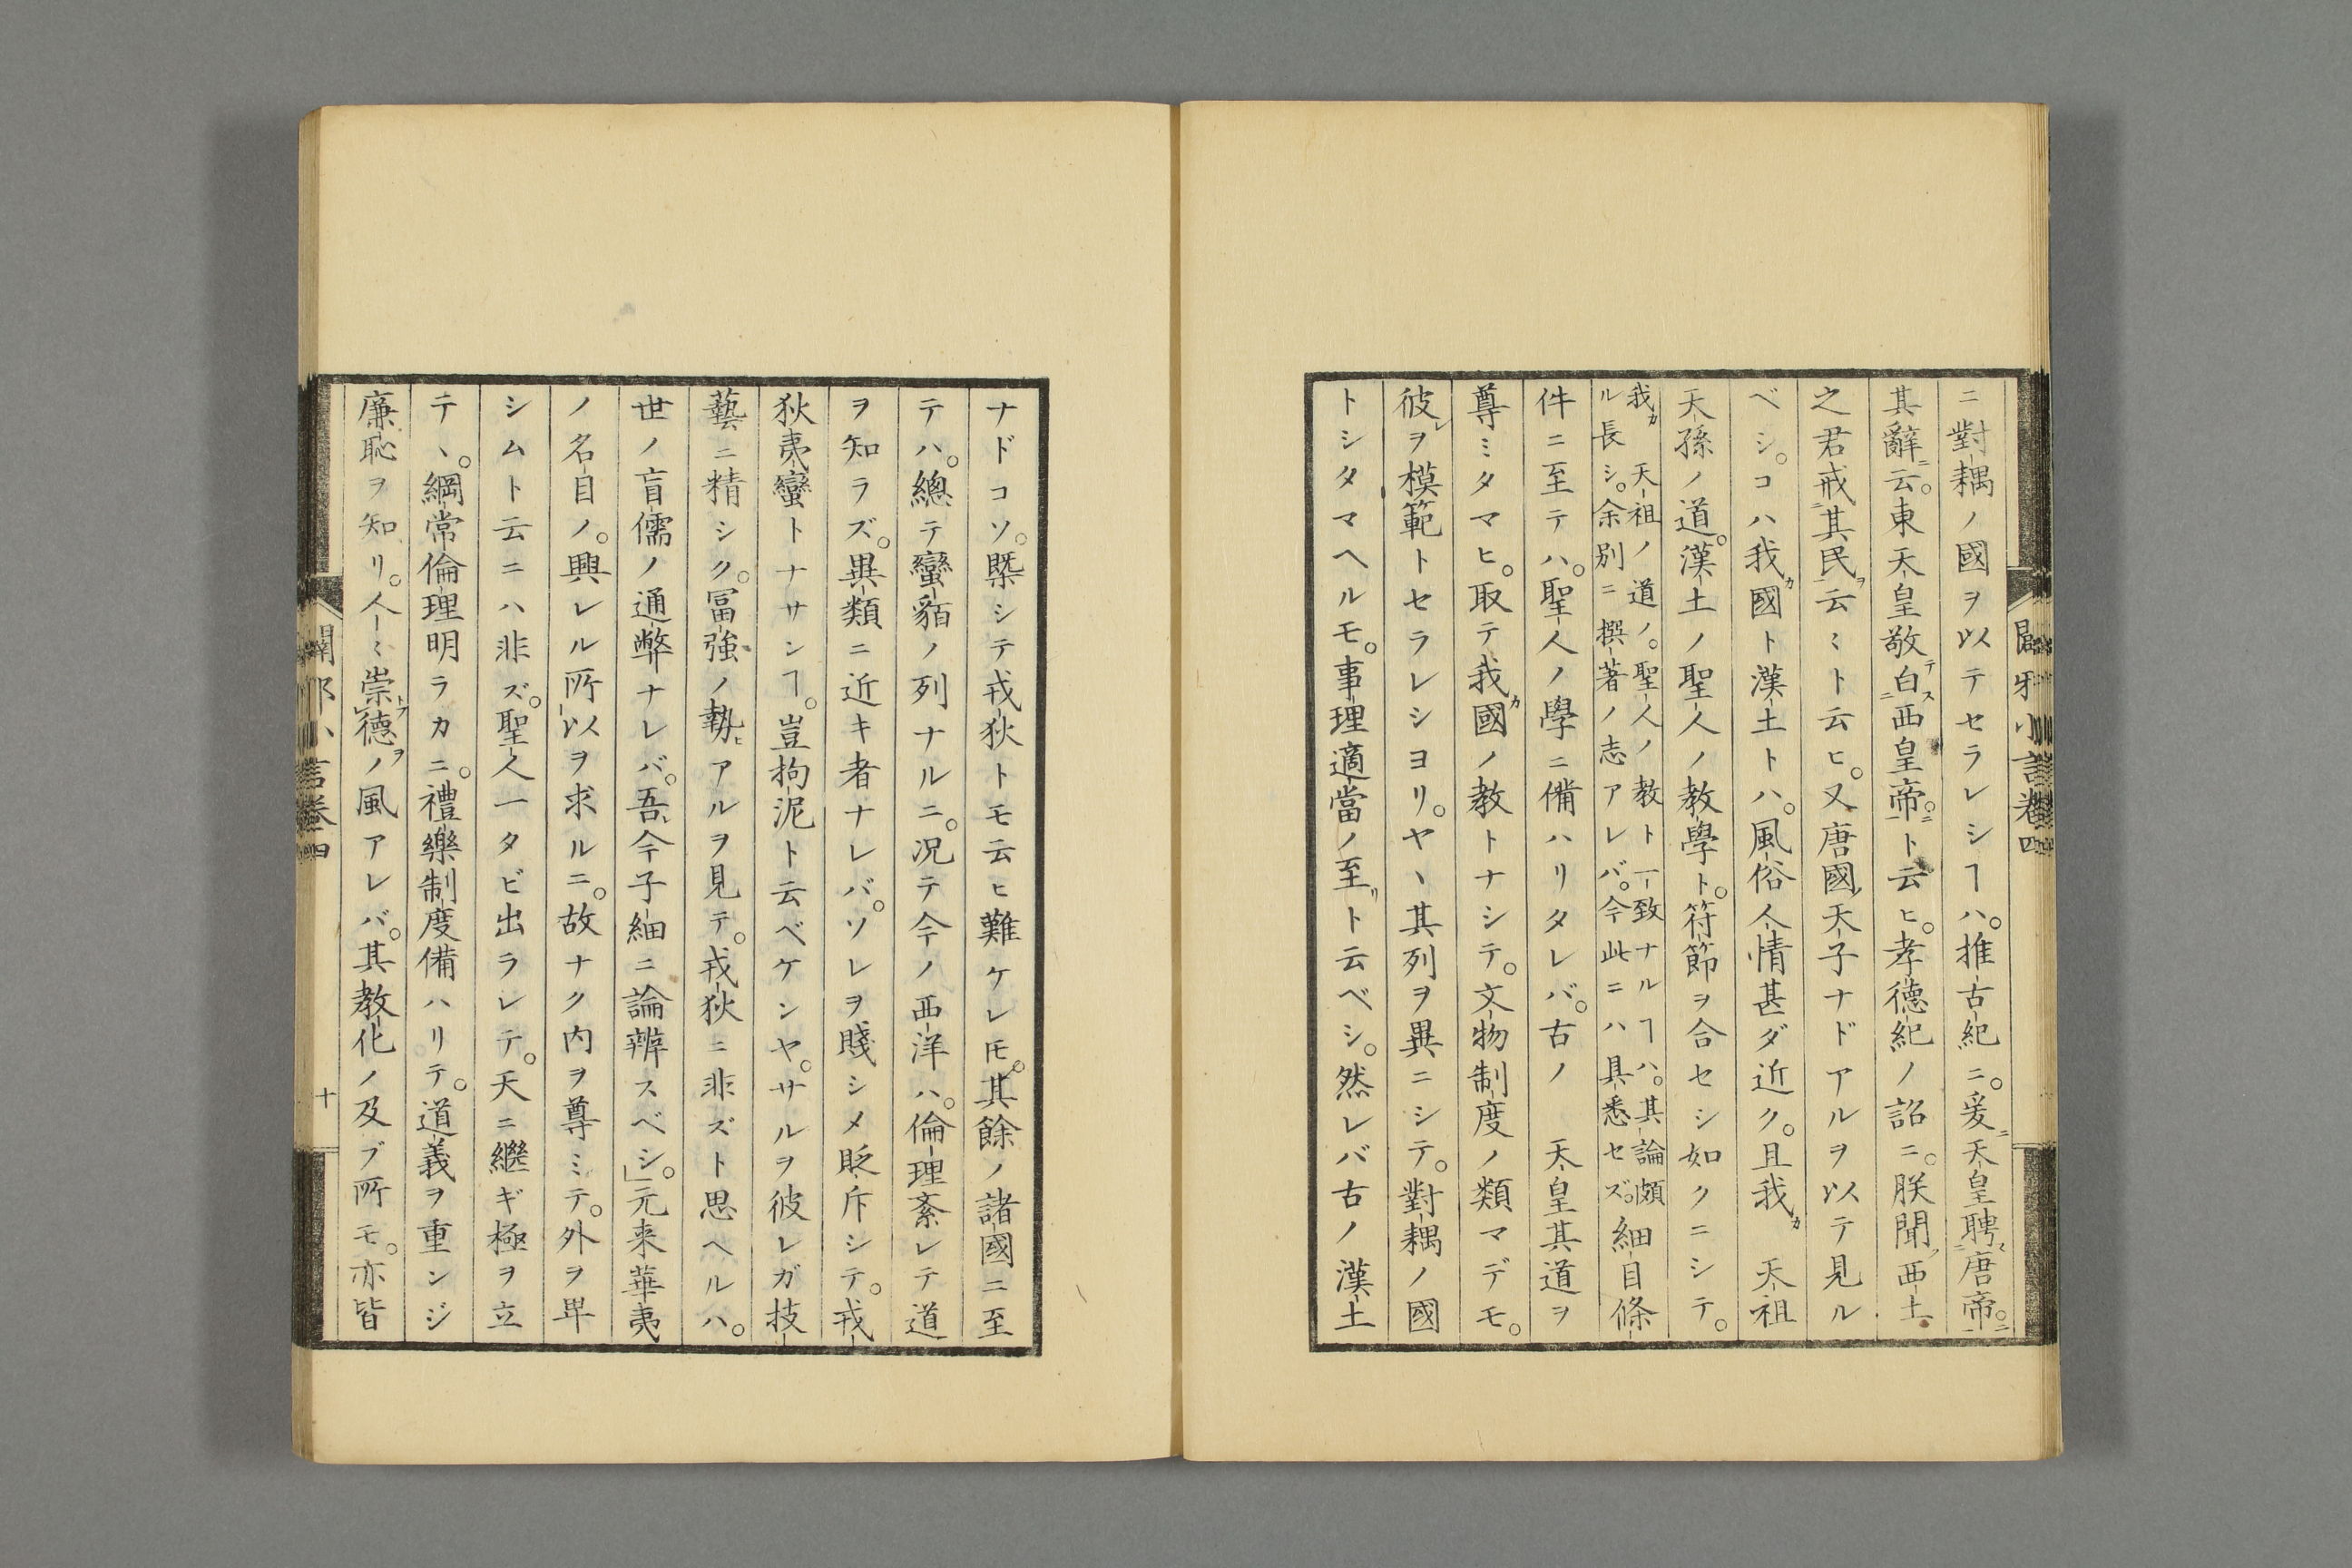 ニ對耦ノ國ヲ以テセラレシヿハ。推古紀ニ。爰ニ天皇聘唐帝。
其辭ニ云。東天皇敬テ白ス西皇帝ニト云ヒ。孝德紀ノ詔ニ。朕聞西土
之君戒其民ヲ云ミト云ヒ。又唐國天子ナドアルヲ以テ見ル
ベシ。コハ我カ國ト漢土トハ。風俗人情甚ダ近ク。且我カ　天祖
天孫ノ道。漢土ノ聖人ノ教學ト。符節ヲ合セシ如クニシテ。
我カ　天祖ノ道ノ。聖人ノ教ト一致ナルヿハ。其論頗
ル長シ。余別ニ撰著ノ志アレバ。今此ニハ具悉セズ。
細目條
件ニ至テハ。聖人ノ學ニ備ハリタレバ。古ノ　天皇其道ヲ
尊ミタマヒ。取テ我カ國ノ教トナシテ。文物制度ノ類マデモ。
彼レヲ模範トセラレシヨリ。ヤヽ其列ヲ異ニシテ。對耦ノ國
トシタマヘルモ。事理適當ノ至リト云ベシ。然レバ古ノ漢土
闢邪小言卷四
ナドコソ。槩シテ戎狄トモ云ヒ難ケレ𪜈。其餘ノ諸國ニ至
テハ。總テ蠻貊ノ列ナルニ。况テ今ノ西洋ハ。倫理紊レテ道
ヲ知ラズ。異類ニ近キ者ナレバ。ソレヲ賤シメ貶斥シテ。戎
狄夷蠻トナサンヿ。豈拘泥ト云ベケンヤ。サルヲ彼レガ技
藝ニ精シク。冨強ノ勢ヒアルヲ見テ。戎狄ニ非ズト思ヘルハ。
世ノ盲儒ノ通弊ナレバ。吾今子細ニ論辨スベシ。」元来華夷
ノ名目ノ。興レル所以ヲ求ルニ。故ナク内ヲ尊ミテ。外ヲ卑
シムト云ニハ非ズ。聖人一タビ出ラレテ。天ニ繼ギ極ヲ立
テヽ。綱常倫理明ラカニ。禮樂制度備ハリテ。道義ヲ重ンジ
廉恥ヲ知リ。人ミ崇トブ德ヲノ風アレバ。其教化ノ及ブ所モ。亦皆
闢邪小言卷四
十